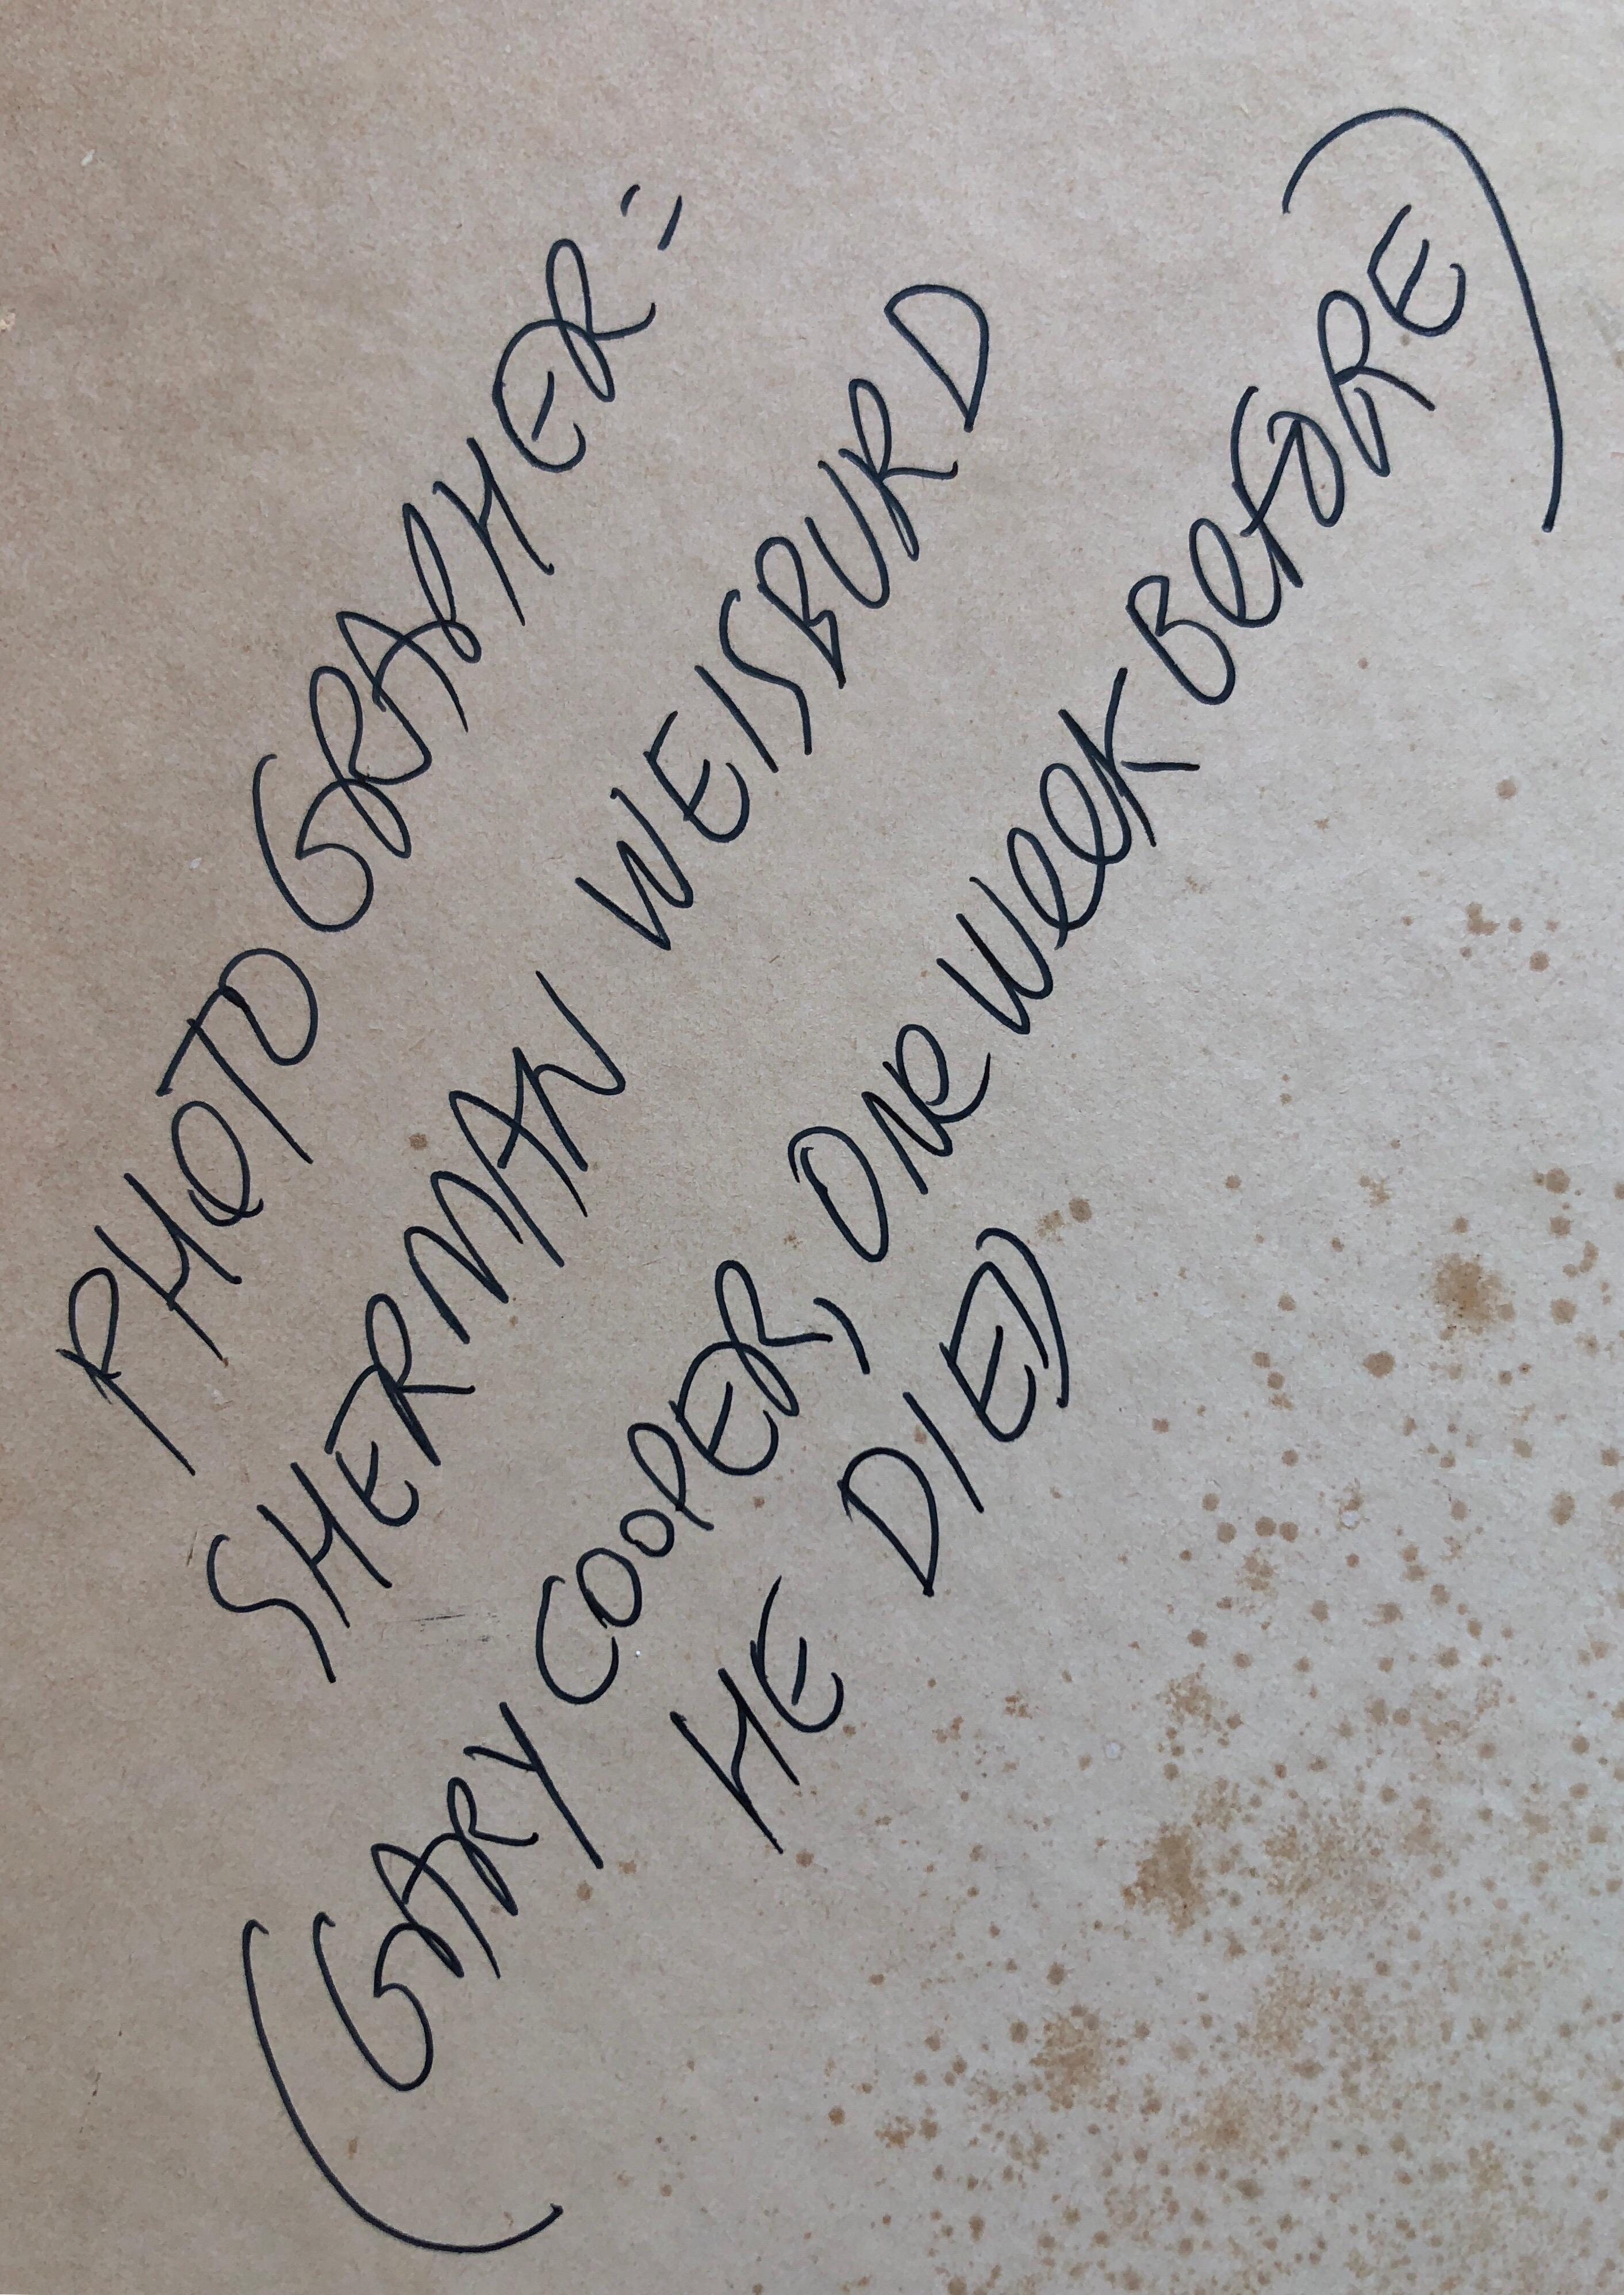 PHOTOGRAPHER=
SHERMAN WEISBURD
(GARY COOPER, ONE WEEK BEFORE
HE DIED)